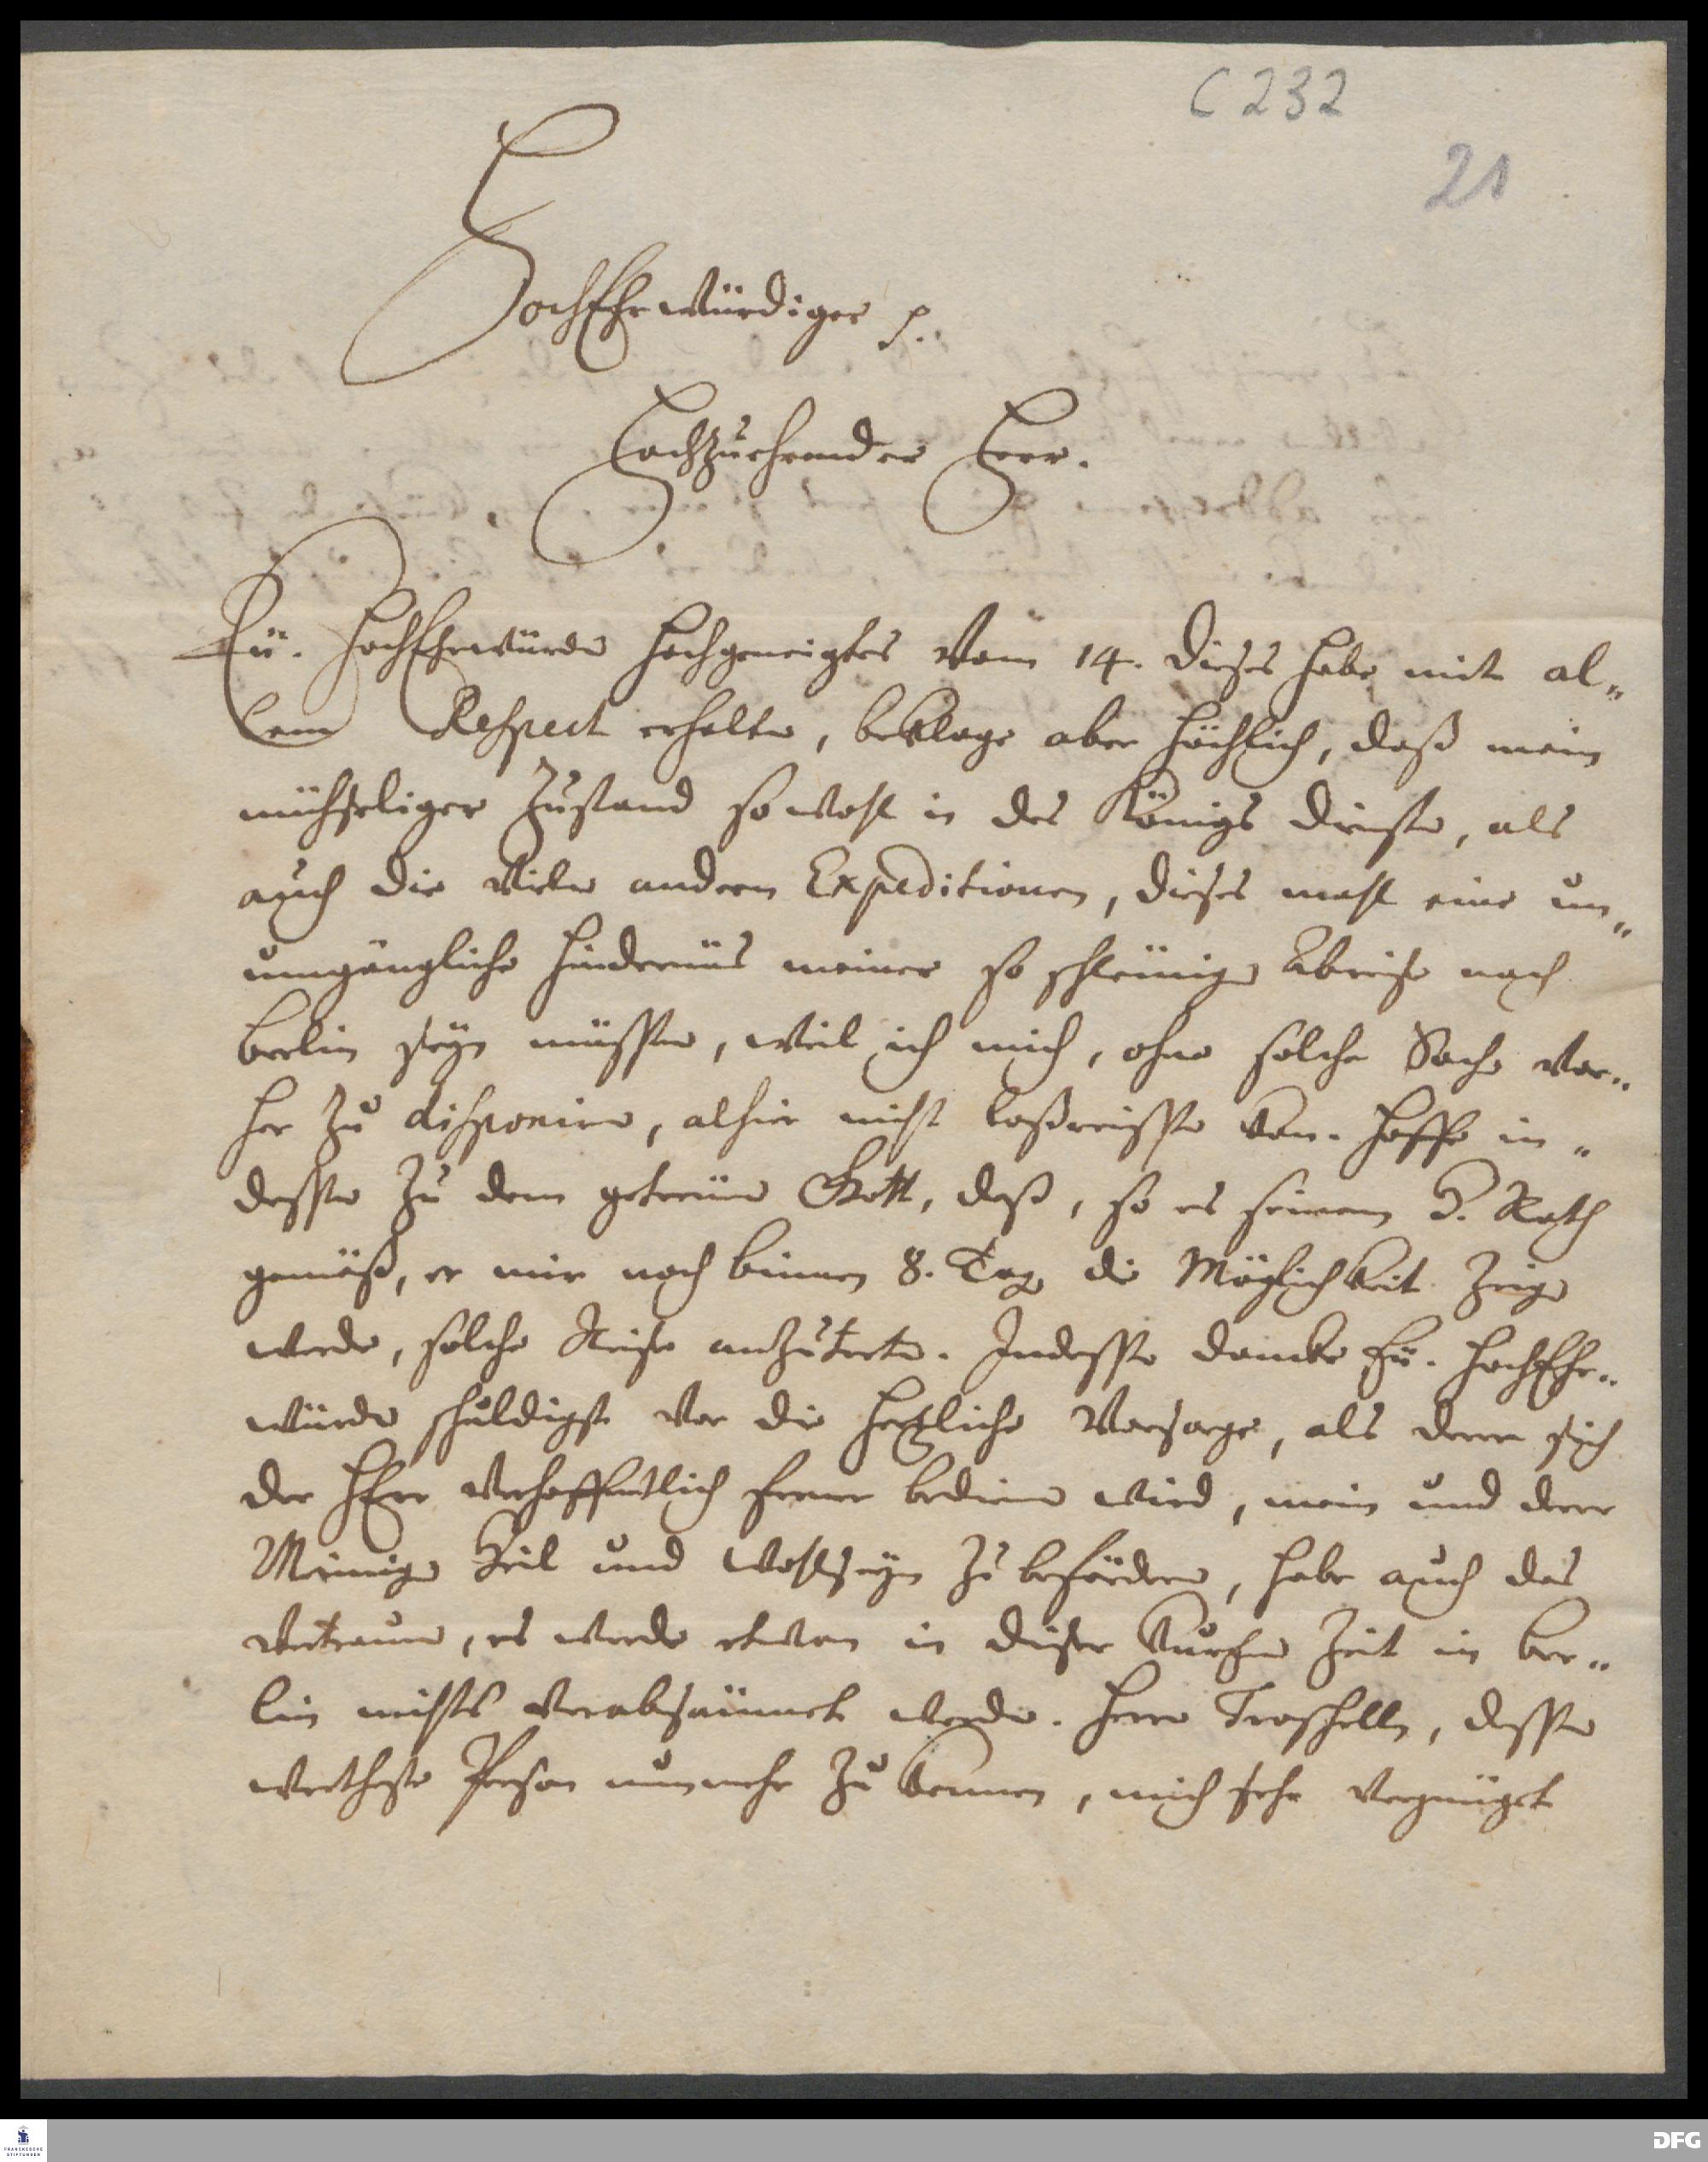 C 232
21
HochEhrwürdiger p.
Hochzuehrender Herr.
Eü. HochEhrwürden hochgeneigtes vom 14. dieses habe mit al„
lem Respect erhalten, beklage aber höchlich, daß mein
mühseliger Zustand so wohl in des Königs Diensten, als
auch die vielen andern Expeditionen, dieses mahl eine un„
umgängliche Hindernüs meiner so schleünigen Abreise nach
Berlin seyn müssen, weil ich mich, ohne solche Sache vor„
her zu disponiren, alhier nicht loßreissen kan. Hoffe in„
dessen zu dem getreüen Gott, daß, so es seinem H. Rath
gemäß, er mir noch binnen 8. Tagen die Möglichkeit zeigen
werde, solche Reise anzutreten. Indessen dancke Eü. HochEhr„
würden schuldigst vor die hertzliche Vorsorge, als derer sich
der HErr verhoffentlich ferner bedienen wird, mein und derer
Meinigen Heil und wohlseyn zu befördern, habe auch das
Vertrauen, es werde etwan in dieser kurtzen Zeit in Ber„
lin nichts verabsäumet werden. Herrn Troschelln, dessen
wertheste Person nunmehr zu kennen, mich sehr vergnüget
FRANCKESCHE
STIFTUNGEN
DFG